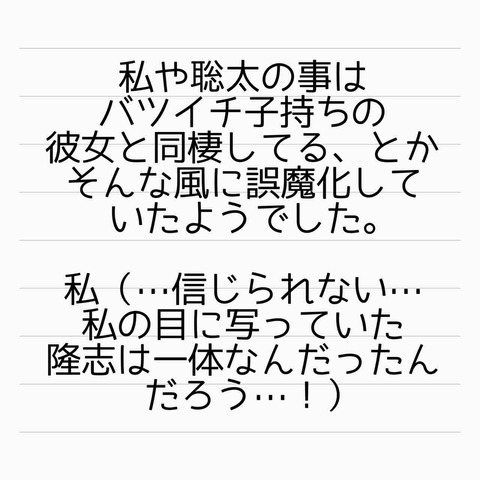 私や聡太の事は
バツイチ子持ちの
彼女と同棲してる、とか
そんな風に誤魔化して
いたようでした。
私（…信じられない…
私の目に写っていた
隆志は一体なんだったん
だろう…！）